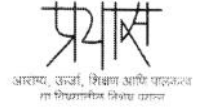 प्रयास
आरोग्य, ऊर्जा, शिक्षण आणि पालकत्व
या विषयातील विशेष प्रयत्न